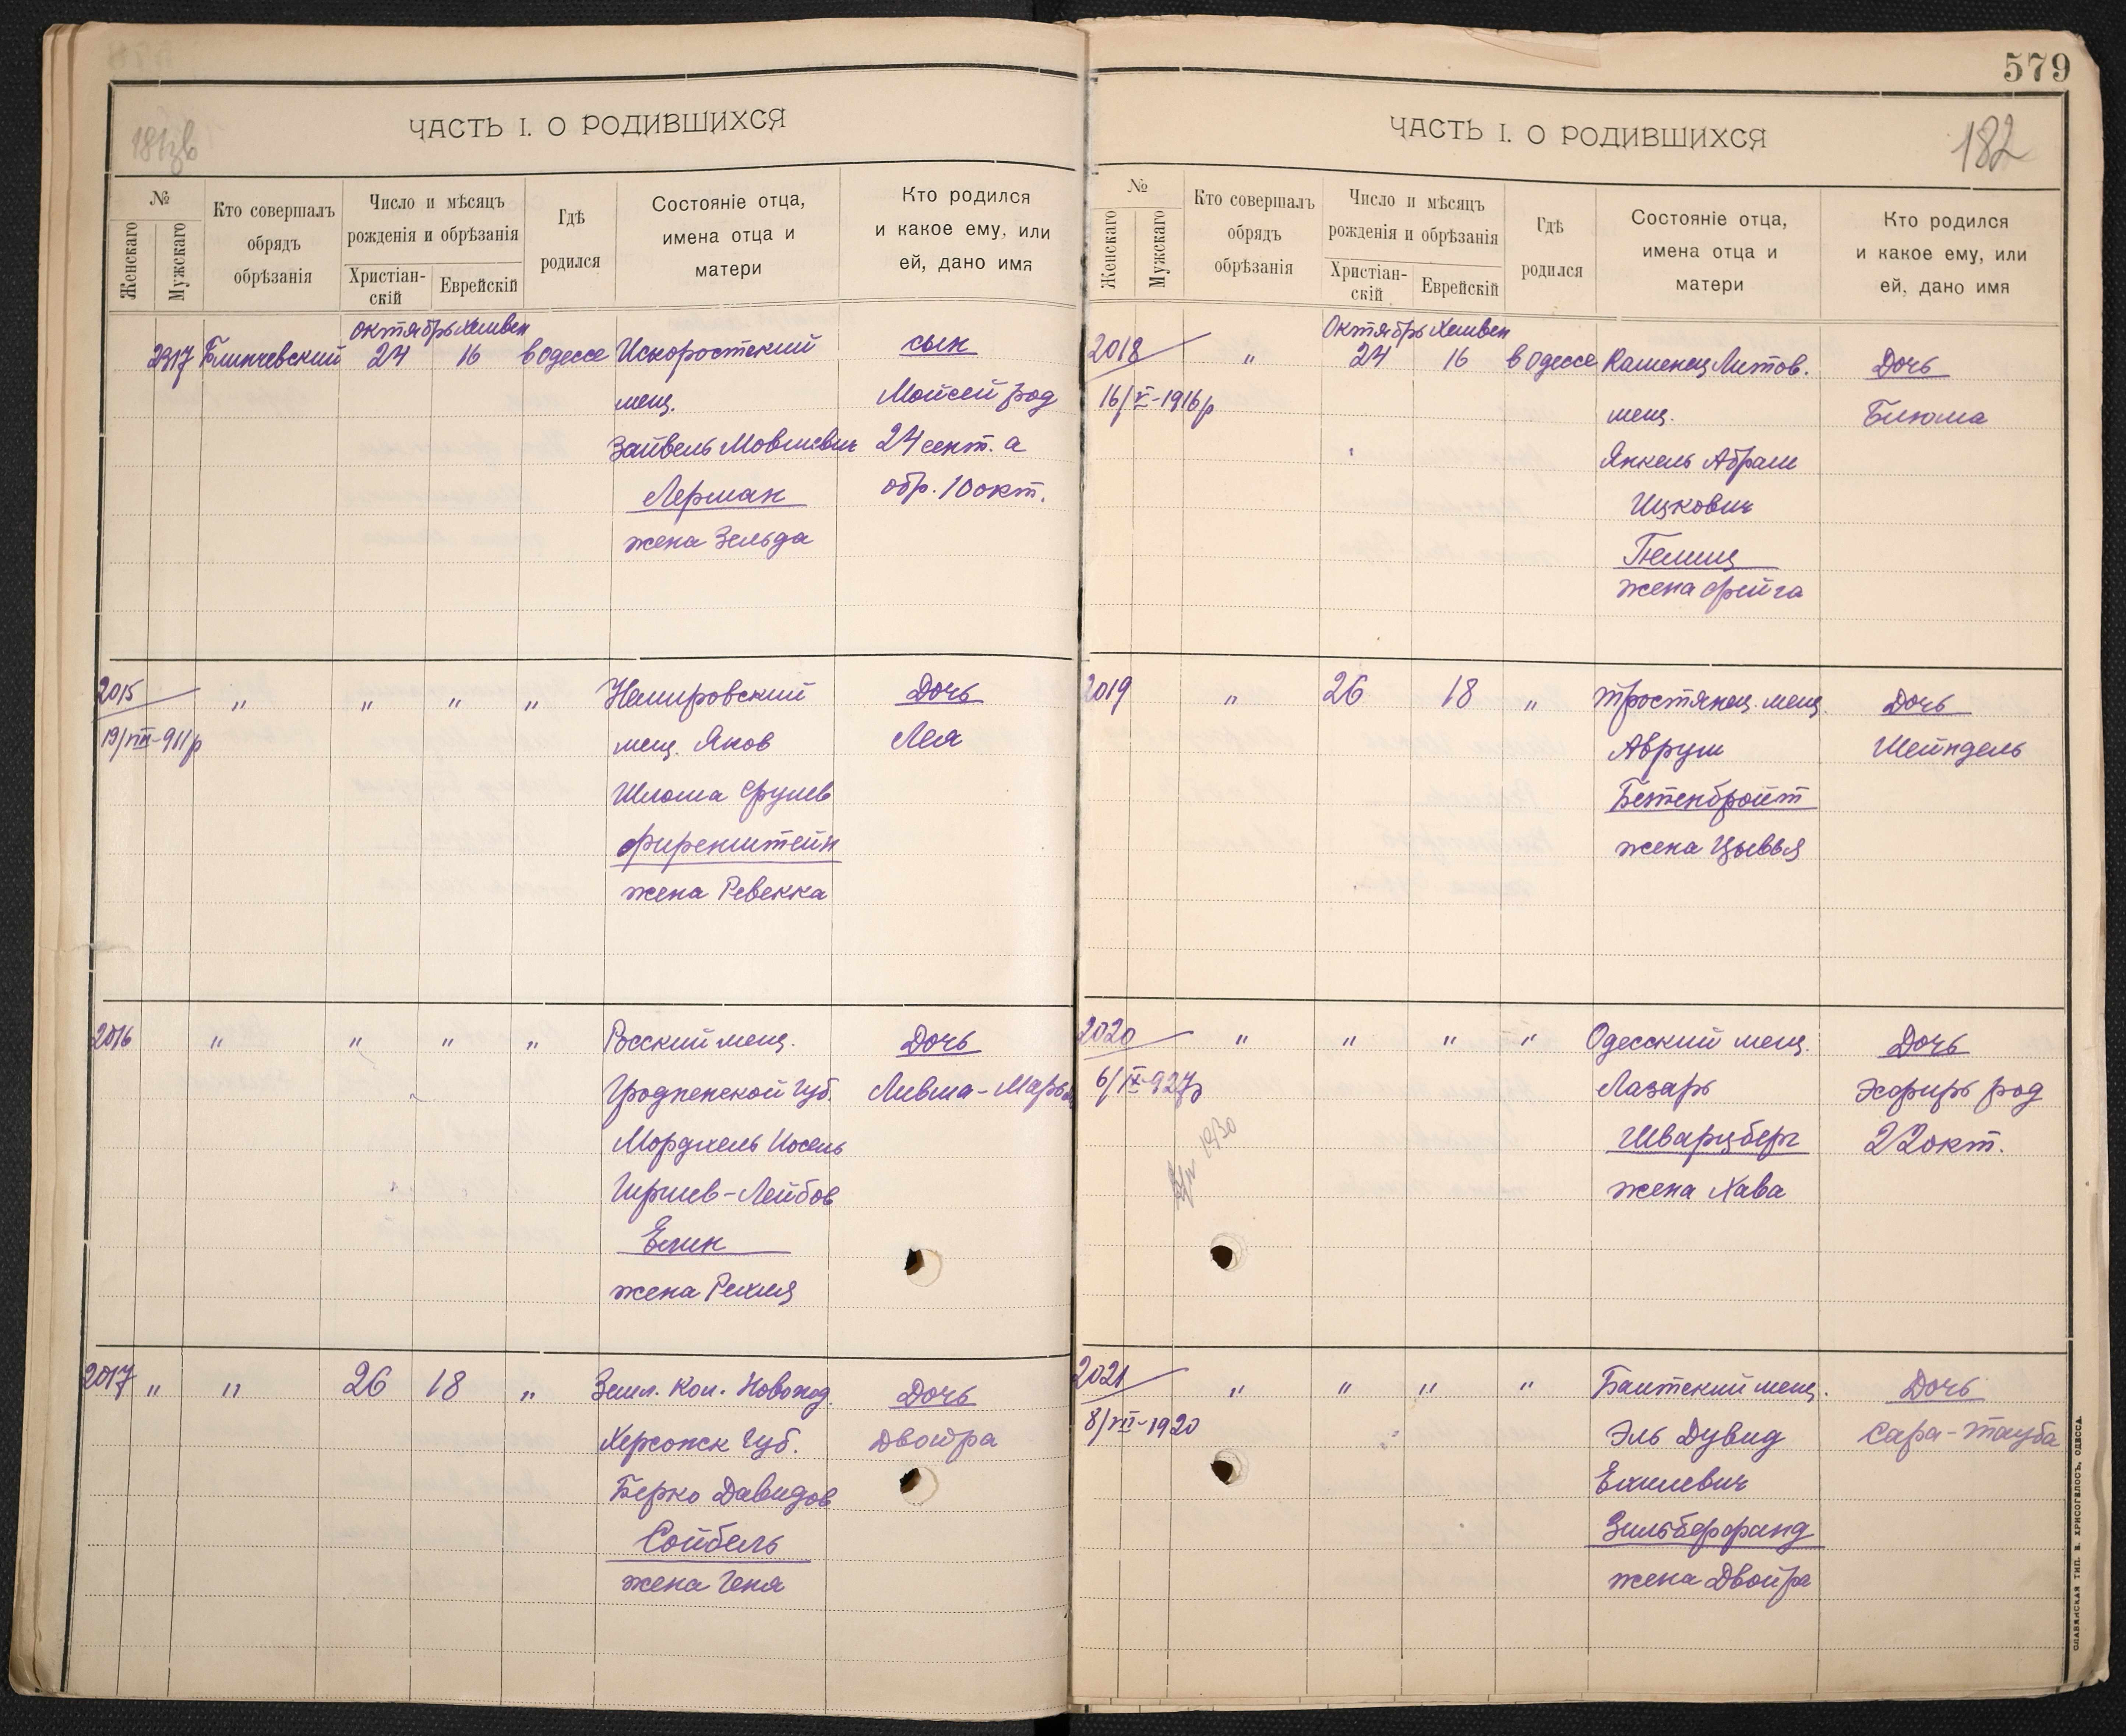 181зв
ЧАСТЬ I. О РОДИВШИХСЯ
№
Женскаго
Мужскаго
Кто совершалъ
обрядъ
обрѣзанія
Число и мѣсяцъ
рожденія и обрѣзанія
Христіан-
скій
Еврейскій
Гдѣ
родился
Состояніе отца,
имена отца и
матери
Кто родился
и какое ему, или
ей, дано имя
октябрь Хешвен
2317 24 16 в Одессе Искоростский сын
мещ. Мойсей род
Зайвель Мовшевич 24 сент. а
Лерман обр. 10 окт.
жена Зельда
2015 " " " " Немировский Дочь
19/VIII-911р мещ. Яков Лея
Шлома Срулев
Фиренштейн
жена Ревекка
2016 " " " " Росский мещ. Дочь
Гродненской губ. Ливша-Марьям
Мордхель Иосель
Гиршев-Лейбов
Елин
жена Рехля
2017 " " 26 18 " Земл. Кол. Новопод. Дочь
Херсонск губ. Двойра
Берко Давидов
Сойбель
жена Геня
579
182
ЧАСТЬ I. О РОДИВШИХСЯ
№
Женскаго
Мужскаго
Кто совершалъ
обрядъ
обрѣзанія
Число и мѣсяцъ
рожденія и обрѣзанія
Христіан-
скій
Еврейскій
Гдѣ
родился
Состояніе отца,
имена отца и
матери
Кто родился
и какое ему, или
ей, дано имя
Октябрь Хешвен
2018 " 24 16 в Одессе Каменец Литов. Дочь
16/V-1916р мещ. Блюма
Янкель Абрам
Ицкович
жена Фейга
2019 " 26 18 " Тростянец. мещ. Дочь
Аврум Шейндель
Бетенбройт
жена Цывья
2020 " " " " Одесский мещ. Дочь
6/IX-927р Лазарь Эсфирь род
Шварцберг 22 окт.
1930
жена Хава
2021 " " " " Балтский мещ. Дочь
8/VII-1920 Эль Дувид Сара-Тауба
Ехилевич
Зильберфранд
жена Двойра
СЛАВЯНСКАЯ ТИП. В. ХРИСОГЕЛОСЪ, ОДЕССА.